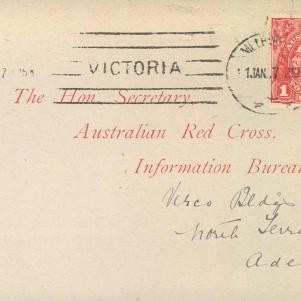 VICTORIA
1JAN.7
The Hon. Secretary,
Australian Red Cross.
Information Bureau
Verco Bldgs
North Terra
Ade
1